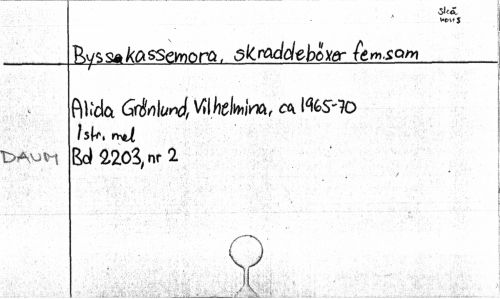 Byssakassemora, skraddeböxer fem.sam
Alida Grönlund, Vilhelmina, ca 1965-70
1 str. mel
DAUM Bd 2203, nr 2